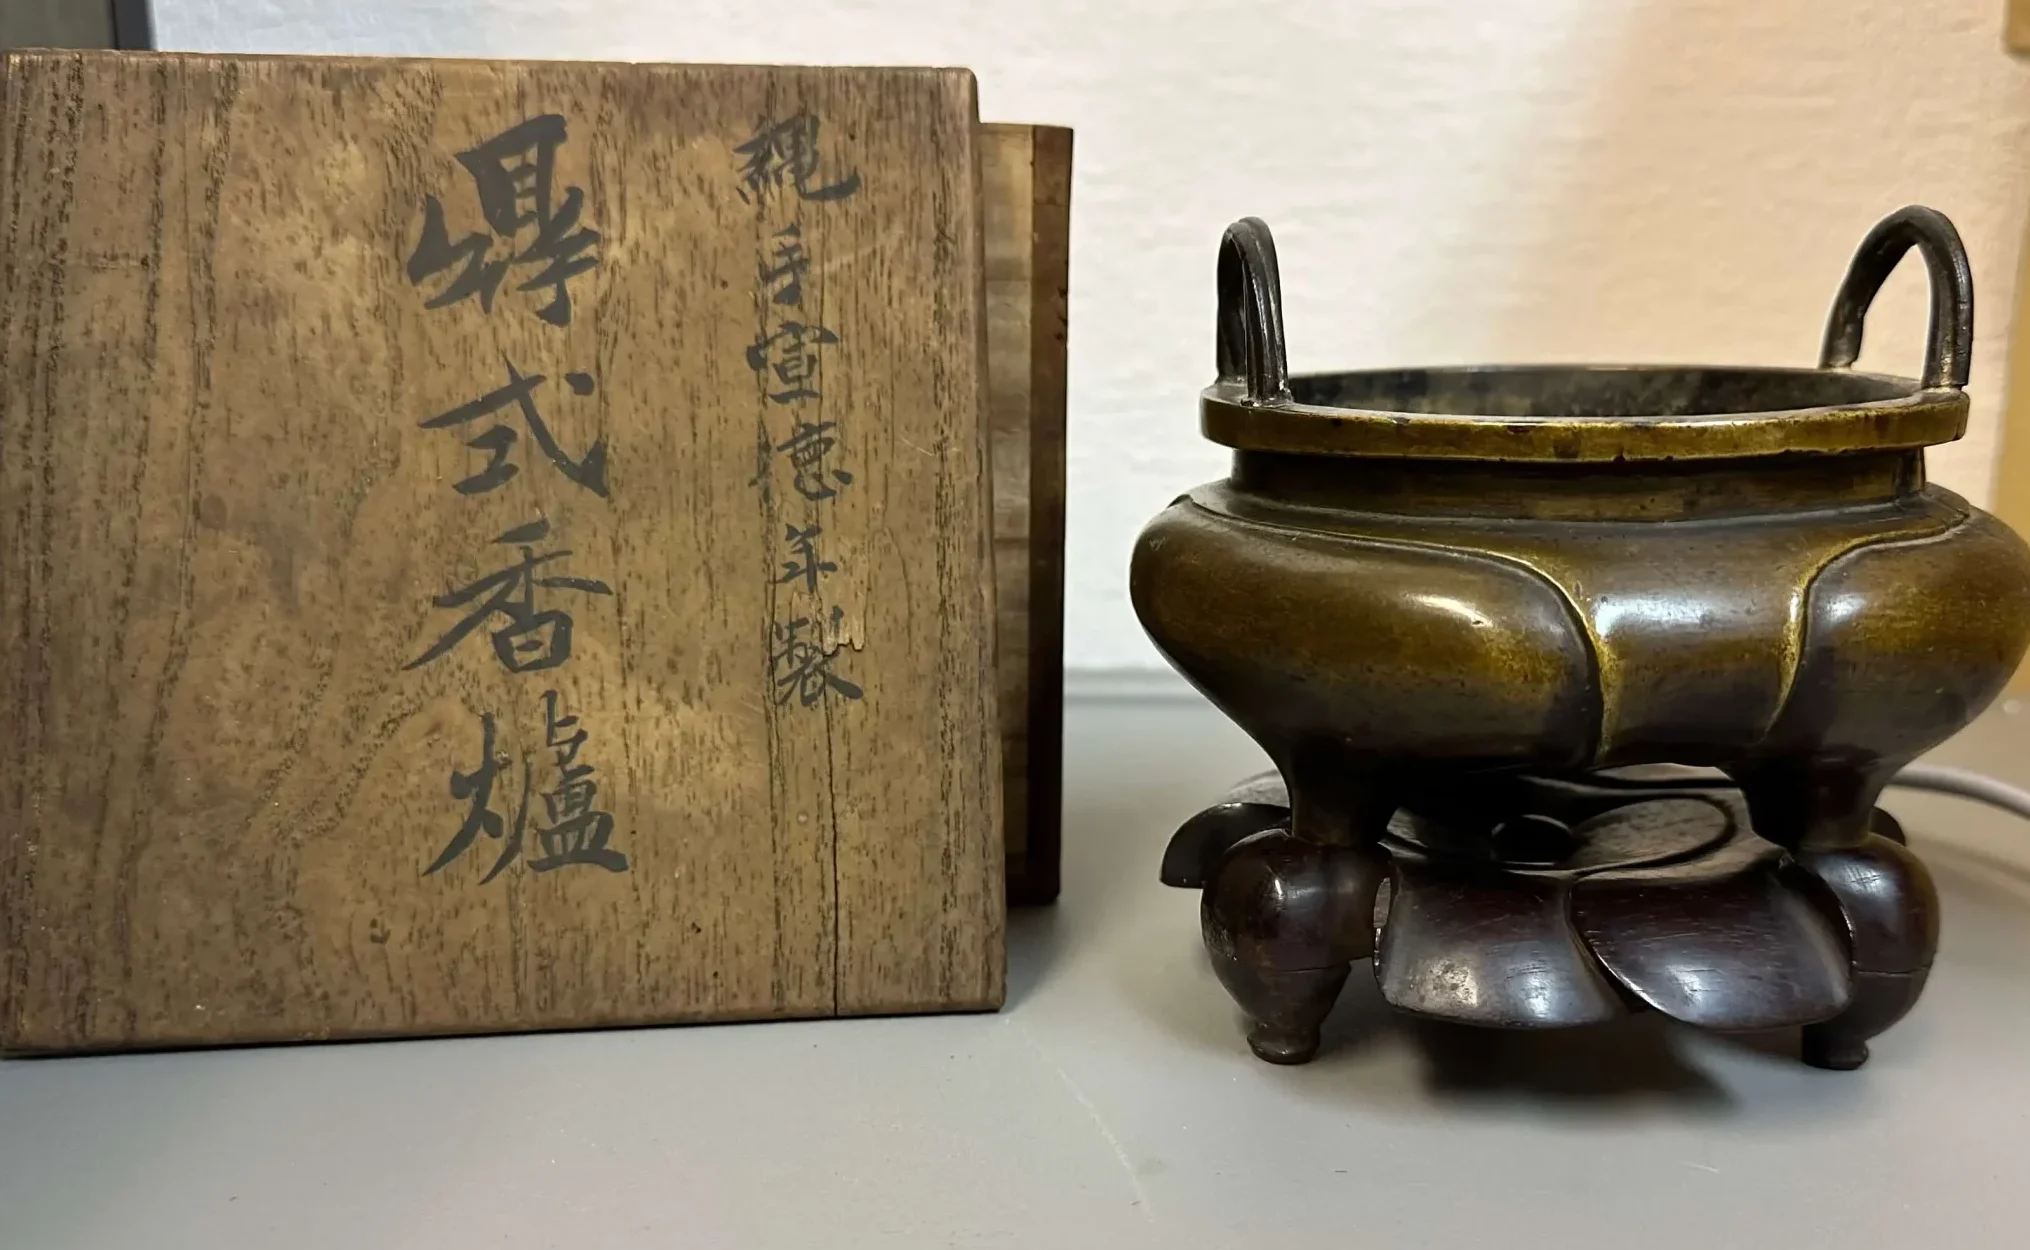 縄手宣徳年製
鼎式香爐